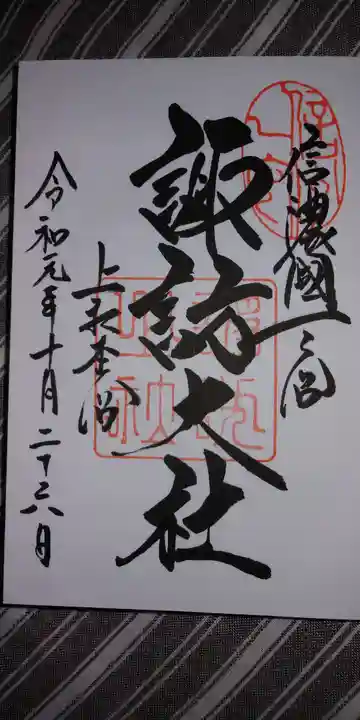 信濃國一之宮
諏訪大社
上社本宮
令和元年十月二十六日